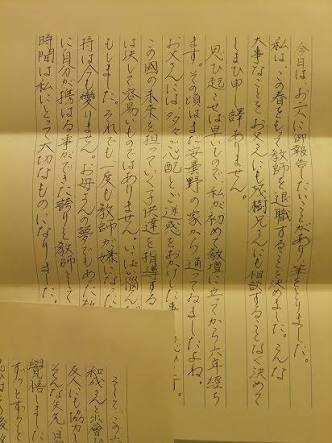 今日は、お二人に御報告したいことがあり筆をとりました。
私は、この春をもって教師を退職することを決めました。こんな
大事なことを、お父さんにも茂樹兄さんにも相談することなく決めて
しまい申し訳ありません。
思い起こせば早いもので、私が初めて教壇に立ってから六年経ち
ます。その頃はまだ安曇野の家から通ってましたよね。
お父さんには、多々ご心配とご迷惑をおかけしま
この国の未来を担っていく子供達を指導する
は決して容易いものではありません。いっぱい悩んだ
もしました。それでも一度も教師が嫌いになった
持は今も変りません。お母さんの夢でもあった教
に自分が携はる事ができた誇りと教師として
時間は私にとって大切なものになりました。
そしてこの六
和哉さんと出会
友人にも協力し
そんな矢先
覚悟しました
ずっとずっと